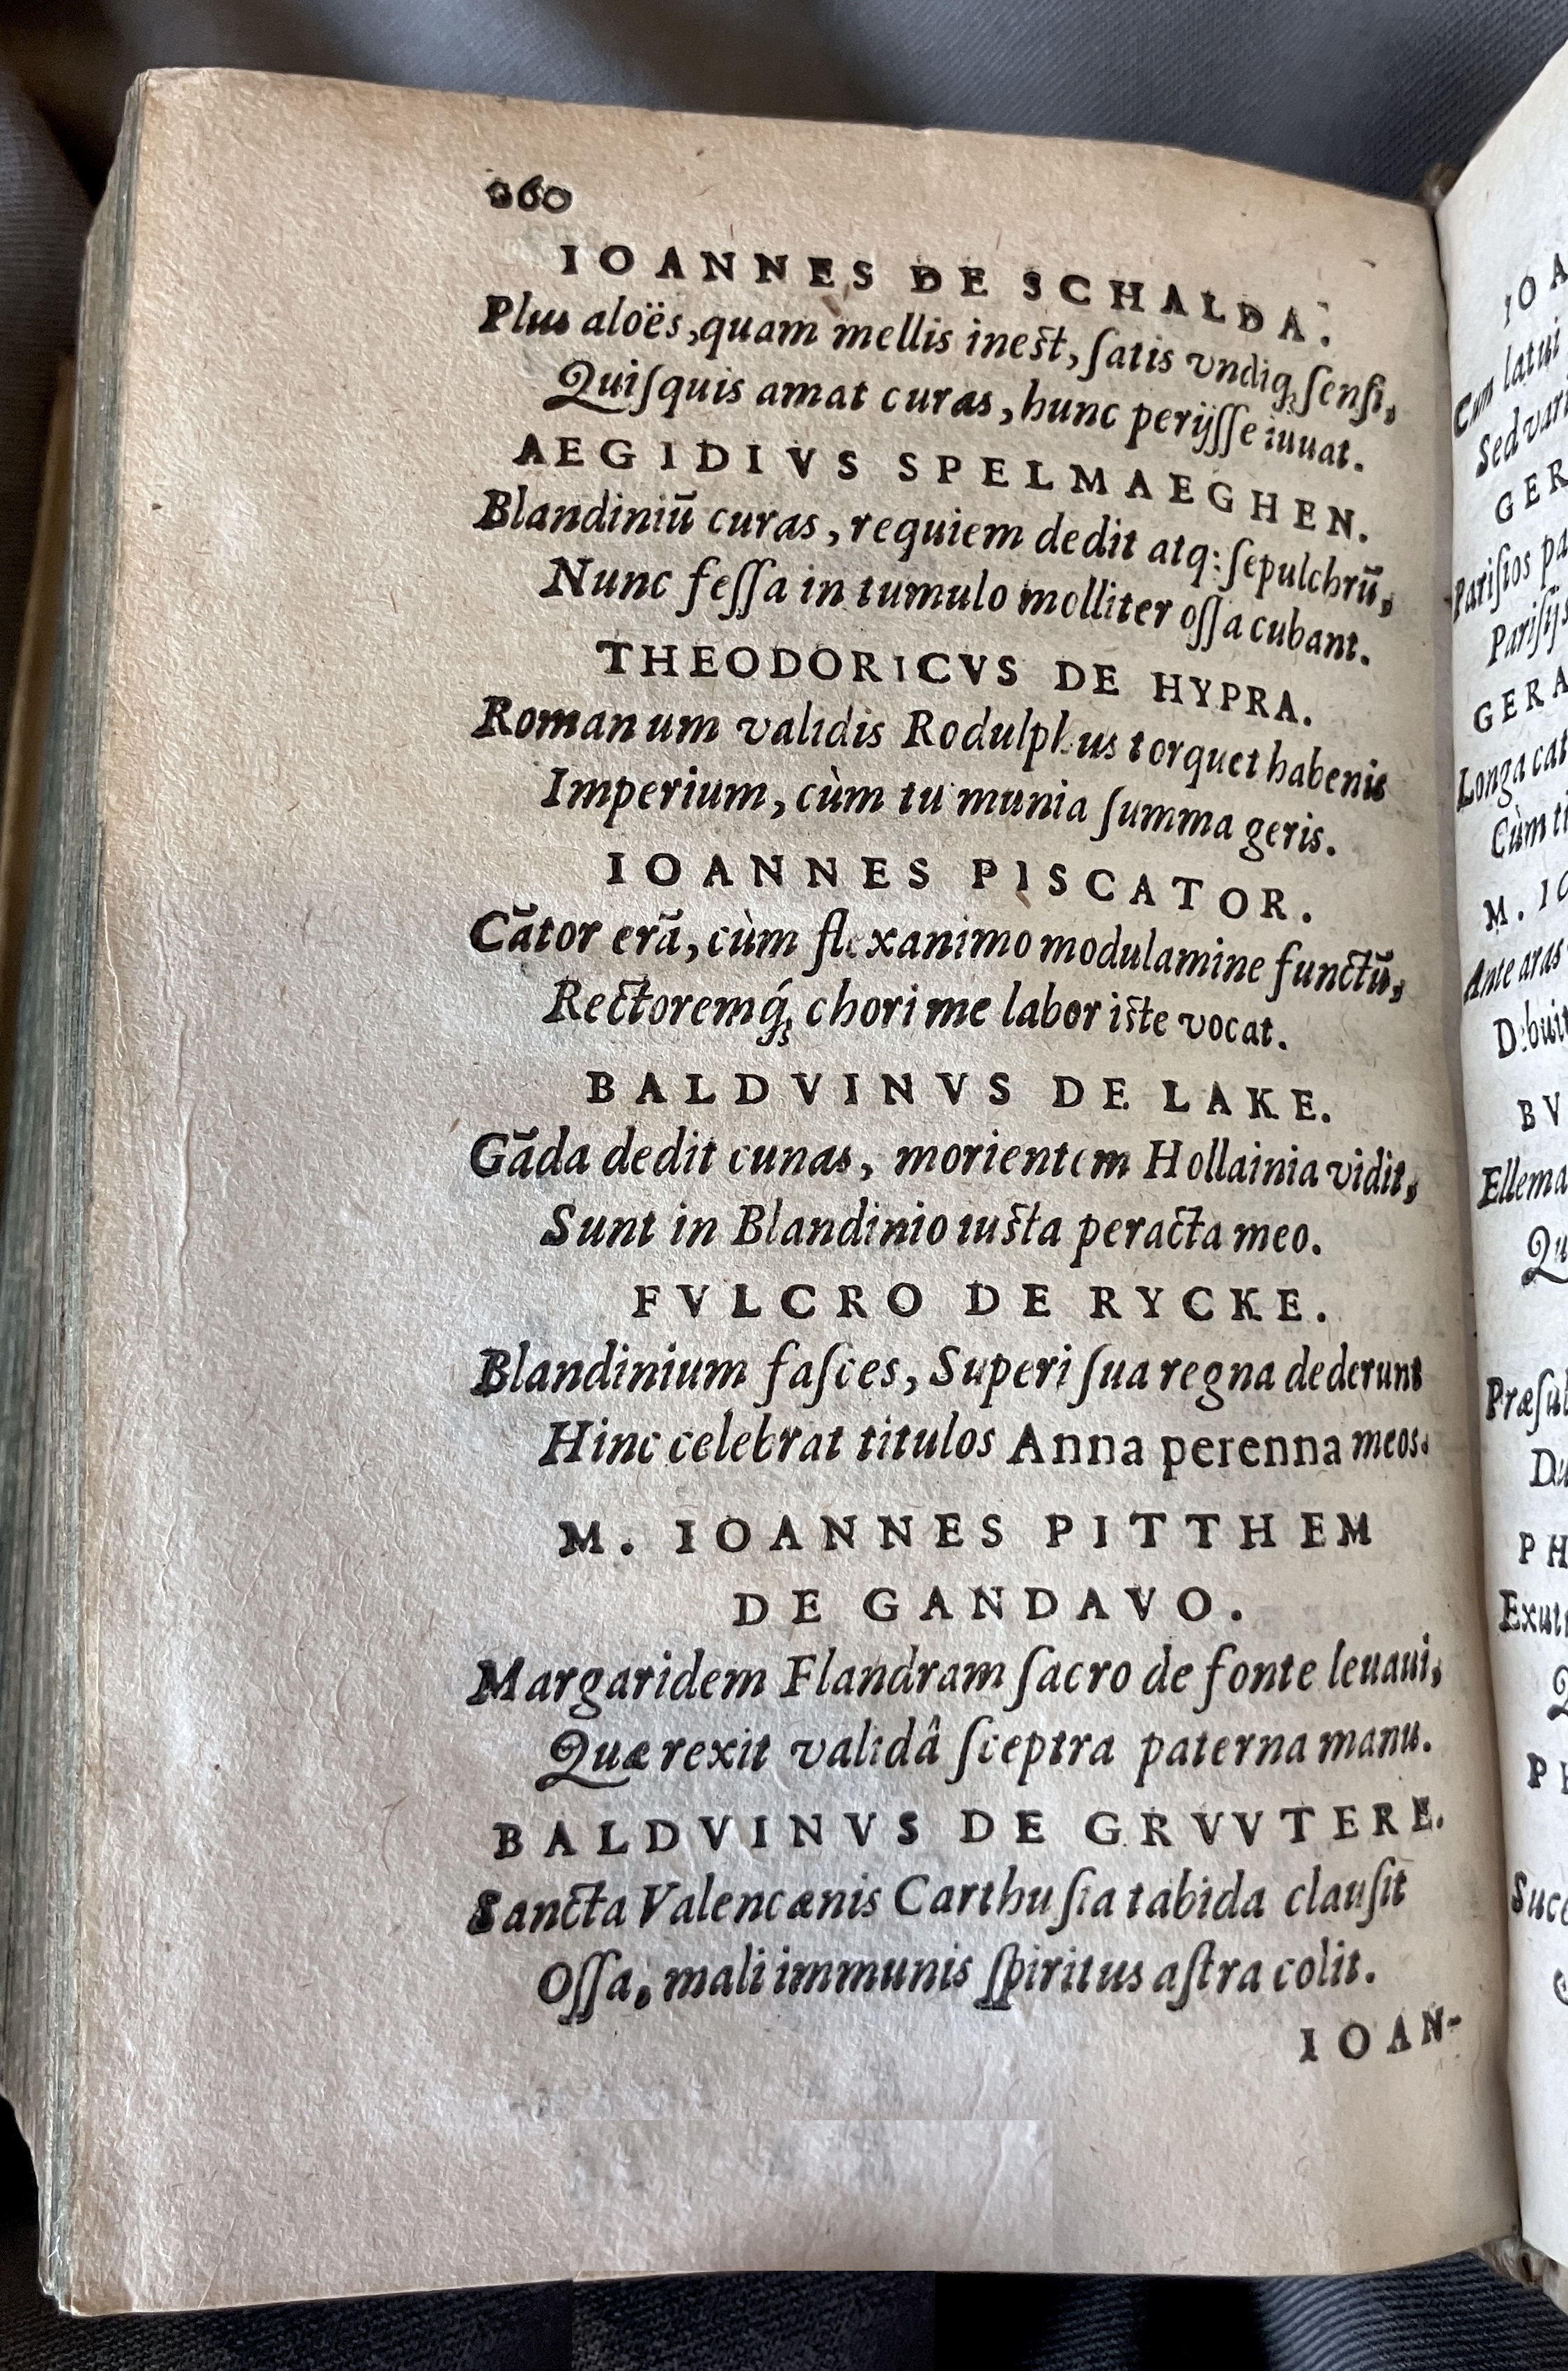 260
IOANNES DE SCHALDA.
Plus aloës, quam mellis inest, ſatis vndiq; ſenſi,
Quiſquis amat curas, hunc perijſſe iuuat.
AEGIDIVS SPELMAEGHEN.
Blandiniū curas, requiem dedit atq: ſepulchrū,
Nunc feſſa in tumulo molliter oſſa cubant.
THEODORICVS DE HYPRA.
Romanum validis Rodulphus torquet habenis
Imperium, cùm tu munia ſumma geris.
IOANNES PISCATOR.
Cātor erā, cùm flexanimo modulamine functū,
Rectoremq́; chori me labor iste vocat.
BALDVINVS DE LAKE.
Gāda dedit cunas, morientem Hollainia vidit,
Sunt in Blandinio iusta peracta meo.
FVLCRO DE RYCKE.
Blandinium faſces, Superi ſua regna dederunt
Hinc celebrat titulos Anna perenna meos.
M. IOANNES PITTHEM
DE GANDAVO.
Margaridem Flandram ſacro de fonte leuaui,
Quæ rexit validâ ſceptra paterna manu.
BALDVINVS DE GRVVTERE.
Sancta Valencænis Carthuſia tabida clauſit
Oſſa, mali immunis ſpiritus aſtra colit.
IOAN-
IOA
Cum latui
Sed vari
GER
Pariſios pa
Pariſijs
GERA
Longa cat
Cùm ti
M. IO
Ante aras
Debuit
BV
Ellema
Qu
Præſul
Du
PH
Exuti
Succ